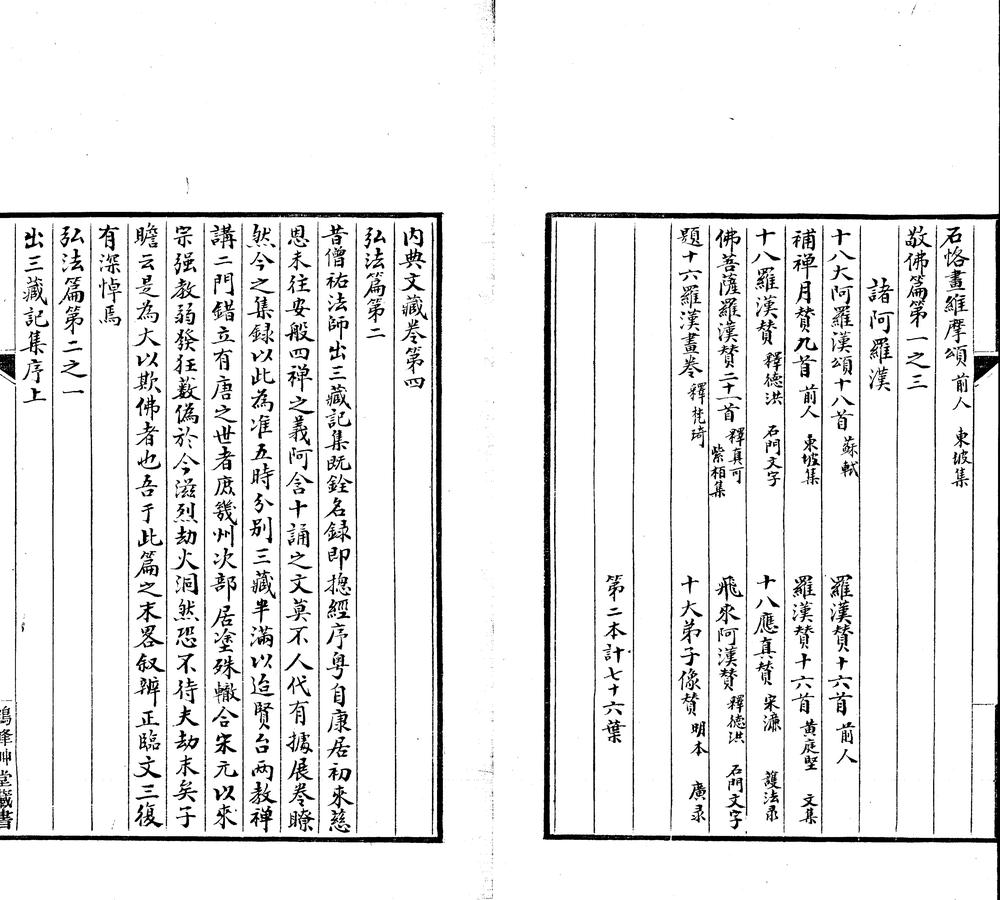 石恪畫維摩頌 前人 東坡集
敬佛篇第一之三
諸阿羅漢
十八大阿羅漢頌十八首 蘇軾 羅漢贊十六首 前人
補禪月贊九首 前人 東坡集 羅漢贊十六首 黃庭堅 文集
十八羅漢贊 釋德洪 石門文字 十八應真贊 宋濂 護法录
佛菩薩羅漢贊二十一首 釋真可 紫栢集 飛來阿漢贊 釋德洪 石門文字
題十六羅漢畫卷 釋梵琦 十大弟子像贊 明本 廣录
第二本計七十六葉
內典文藏卷第四
弘法篇第二
昔僧祐法師出三藏記集既銓名録即摠經序粤自康居初來慈
恩未往安般四禪之義阿含十誦之文莫不人代有據展卷瞭
然今之集録以此為准五時分别三藏半滿以迨賢台两教禅
講二門錯立有唐之世者庶幾州次部居塗殊轍合宋元以來
宗强教弱發狂薮偽於今滋烈劫火洞然恐不待夫劫末矣于
瞻云是為大以欺佛者也吾于此篇之末畧叙辨正臨文三復
有深悼焉
弘法篇第二之一
出三藏記集序上